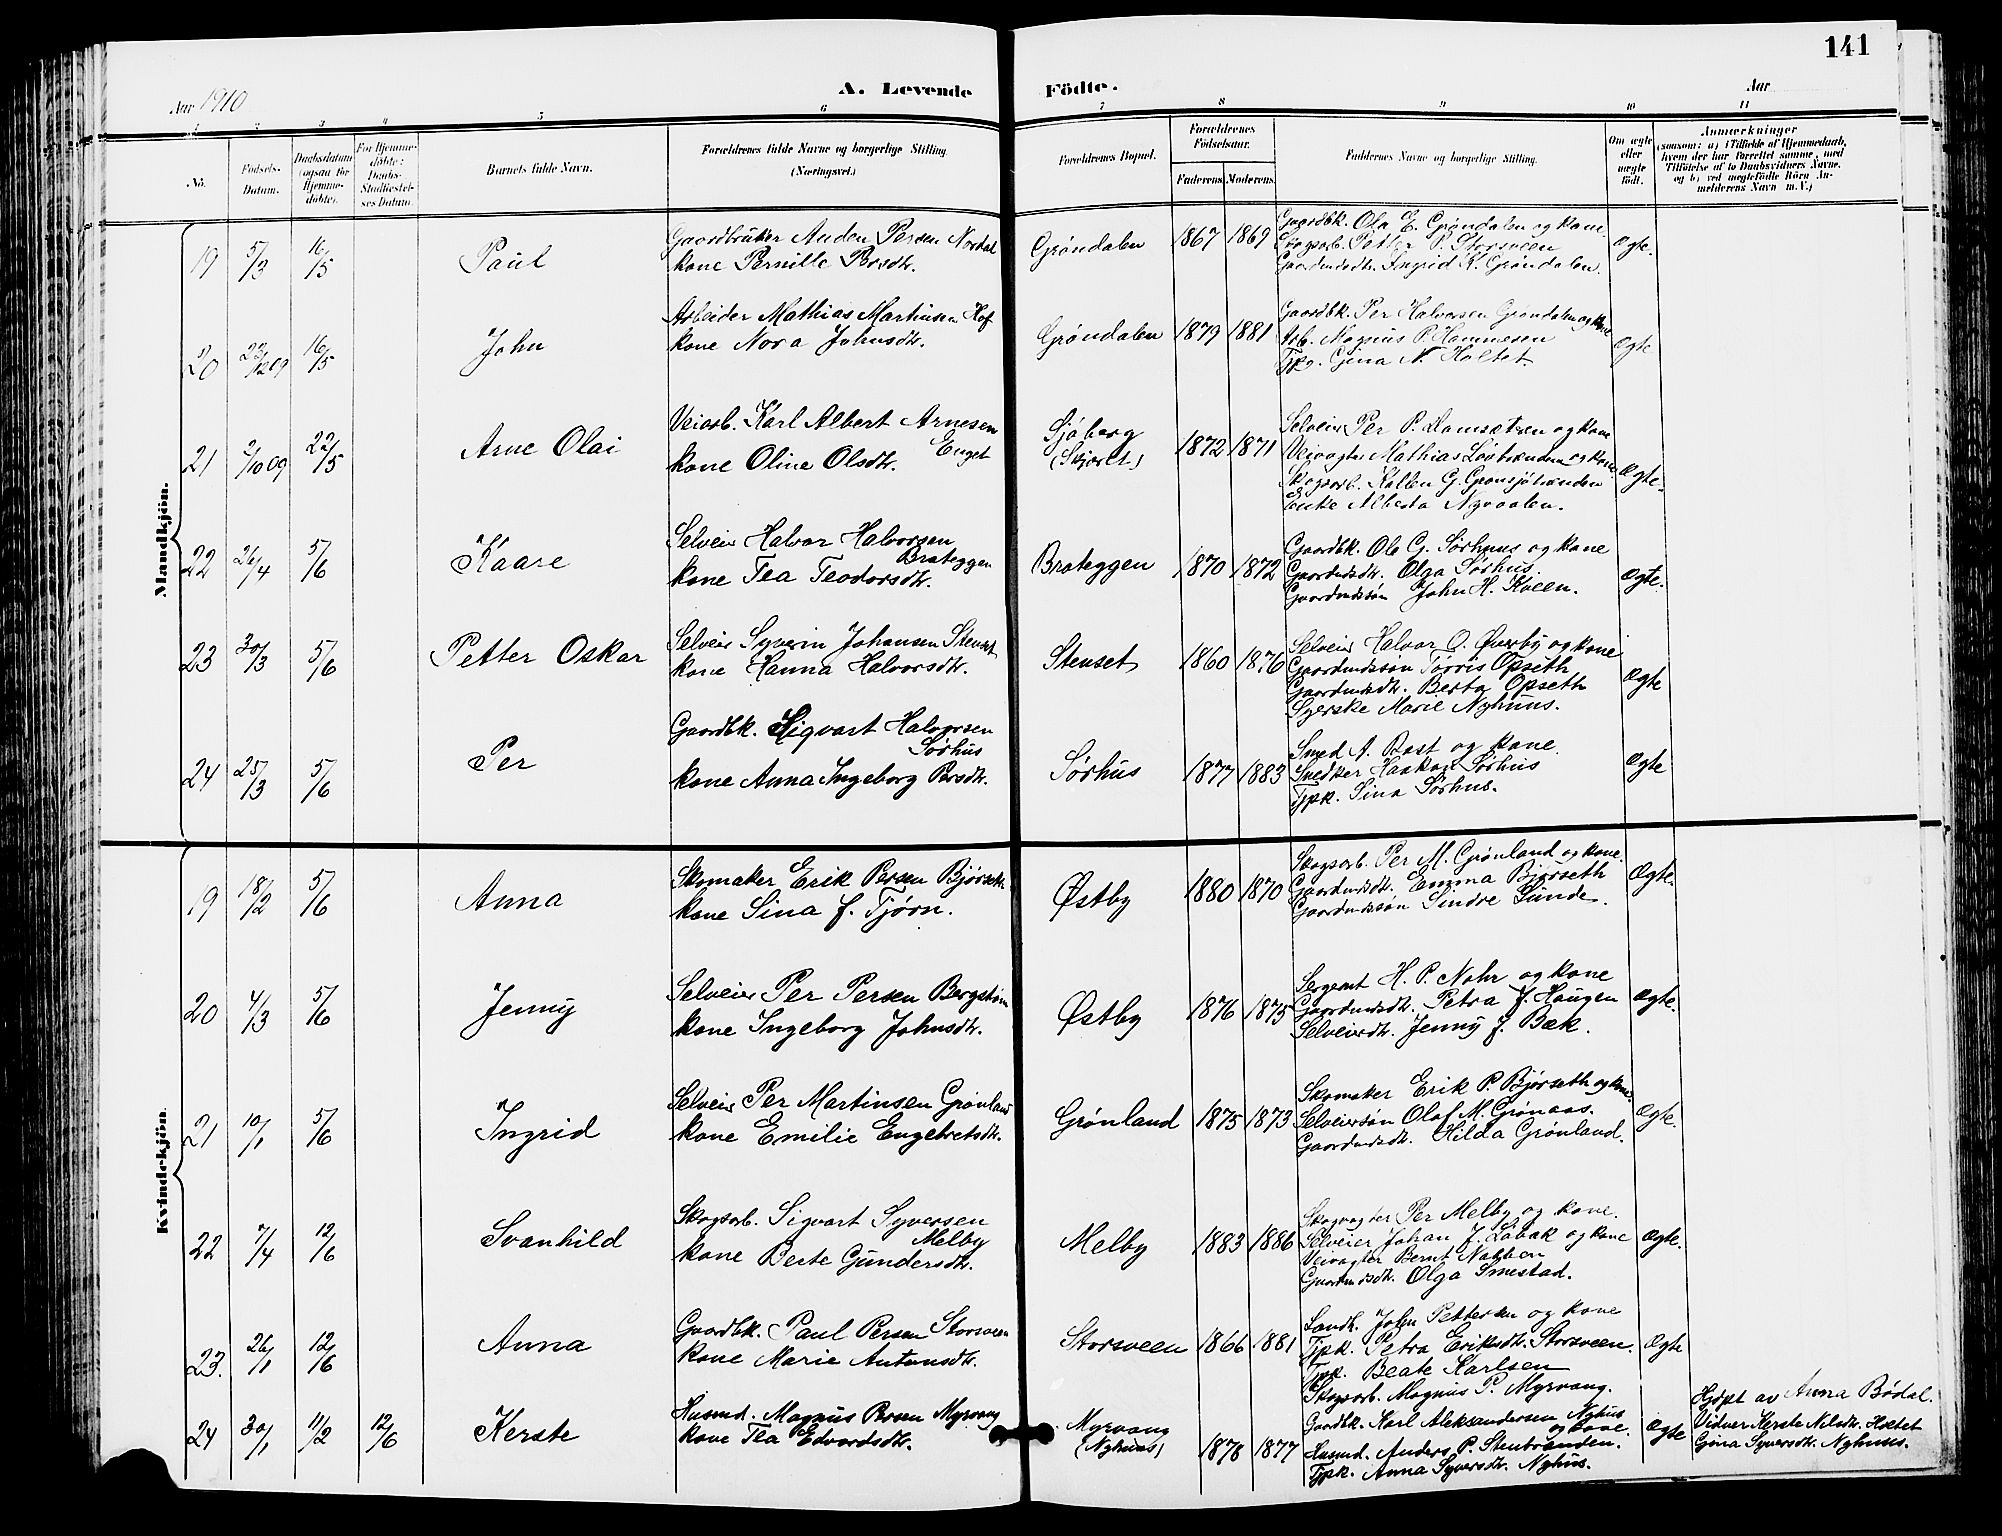 141
Aar 1910
A. Levende Födte.
Aar
1 2 3 4 5 6 7 8 9 10 11
No.
Födsels-
Datum.
Daabsdatum
(ogsaa for
Hjemme-
döbte).
For Hjemme-
döbte:
Daabs-
Stadfæstel-
ses Datum.
Barnets fulde Navn.
Forældrenes fulde Navne og borgerlige Stilling
(Næringsvei.)
Forældrenes Bopæl.
Forældrenes
Födselsaar.
Faderens. Moderens.
Faddernes Navne og borgerlige Stilling.
Om ægte
eller
uægte
født.
Anmærkninger
(saasom: a) i Tilfælde af Hjemmedaab,
hvem der har forrettet samme, med
Tilföielse af to Daabsvidners Navne.
og b) ved uægtefödte Börn An-
melderens Navn m. V.)
Mandkjön.
19 5/3 16/5 Paul
Gaardbruker Auden Persen Nordal
kone Pernille Persdtr.
Grøndalen 1867 1869
Gaardbk. Ola E. Grøndalen og kone
Skogsarb. Petter P. Storsveen
Gaardmdsdtr. Ingrid K. Grøndalen.
Ægte.
20 23/12 09 16/5 John
Arbeider Mathias Martinsen Hof
kone Nora Johnsdtr.
Grøndalen 1879 1881
Gaardbk. Per Halvorsen Grøndalen og kone
Arb. Magnus P. Hammeren
Tjpg. Gina N. Holtet.
Ægte
21 2/10 09 22/5 Arne Olai
Veiarb. Karl Albert Arnesen
Enget
kone Oline Olsdtr.
Sjøberg
(Skjæret)
1872 1871
Selveier Per P. Lomsætren og kone
Veivogter Mathias Løvbrænden og kone.
Skogsarb. Kallen G. Grønsjøbrænden
Enke Alberta Nyvaalen.
Ægte.
22 26/4 5/6 Kaare
Selveier Halvor Halvorsen
Brateggen
kone Tea Teodorsdtr.
Brateggen 1870 1872
Gaardbk. Ole G. Sørhuus og kone
Gaardmdsdtr. Olga Sørhus.
Gaardmdssøn John H. Kveen.
Ægte.
23 30/3 5/6 Petter Oskar
Selveier Syverin Johansen Stenset
kone Hanna Halvorsdtr.
Stenset 1860 1876
Selveier Halvor O. Øverby og kone
Gaardmdssøn Torris Opseth
Gaardmdsdtr. Berta Opseth
Syerske Marie Nyhuus.
Ægte
24 25/3 5/6 Per
Gaardbk. Sigvart Halvorsen
Sørhus
kone Anna Ingeborg Persdtr.
Sørhus 1877 1883
Smed A. Bast og kone.
Snedker Haakon Sørhus
Tjpk. Sina Sørhus.
Ægte
Kvindekjön.
19 18/2 5/6 Anna
Skomaker Erik Persen Bjørseth
kone Sina J. Tjørn.
Østby 1880 1870
Skogsarb. Per M. Grønland og kone.
Gaardmdsdtr. Emma Bjørseth
Gaardmdssøn Sindre Sunde.
Ægte.
20 4/3 5/6 Jenny
Selveier Per Persen Bergstrøm
kone Ingeborg Johnsdtr.
Østby 1876 1875
Sergeant H. P. Nohr og kone
Gaardmdsdtr. Petra J. Haugen
Selveierdtr. Jenny J. Bæk.
Ægte.
21 10/1 5/6 Ingrid
Selveier Per Martinsen Grønland
kone Emilie Engebretsdtr.
Grønland 1875 1873
Skomaker Erik P. Bjørseth og kone
Selveiersøn Olaf M. Grønaas.
Gaardmdsdtr. Hilda Grønland.
Ægte.
22 7/4 12/6 Svanhild
Skogsarb. Sigvart Syversen
Melby
kone Berte Gundersdtr.
Melby 1883 1886
Skogvogter Per Melby og kone.
Selveier Johan J. Labak og kone
Veivogter Bernt Nabben
Gaardmdsdtr. Olga Smestad.
Ægte.
23. 26/1 12/6 Anna
Gaardbk. Paul Persen Storsveen
kone Marie Antonsdtr.
Storsveen 1866 1881
Landh. John Pettersen og kone
Tjpk. Petra Eriksdtr. Storsveen.
Tjpk. Beate Karlsen
Skogsarb. Magnus P. Myrvang.
Ægte
24 30/1 11/2 12/6 Kerste
Husmd. Magnus Persen Myrvang
kone Tea Edvardsdtr.
Myrvang
(Nyhuus)
1878 1877
Gaardbk. Karl Aleksandersen Nyhus
og kone.
Husmd. Anders P. Stenbrænden.
Tjpk. Anna Syversdtr. Nyhus.
Ægte
Hjdpt av Anna Bødal.
Vidner Kerste Nilsdtr. Holtet
Gjina Syversdtr. Nyhuus.